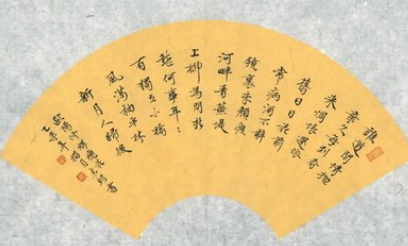 誰道閒情拋
棄久每到春
來惆悵還依
舊日日花前
常病酒不辭
鏡裏朱顏瘦
河畔青蕪堤
上柳為問新
愁何事年々
有獨立小橋
風滿袖平林
新月人歸後
歐陽修蝶戀花
乙未年